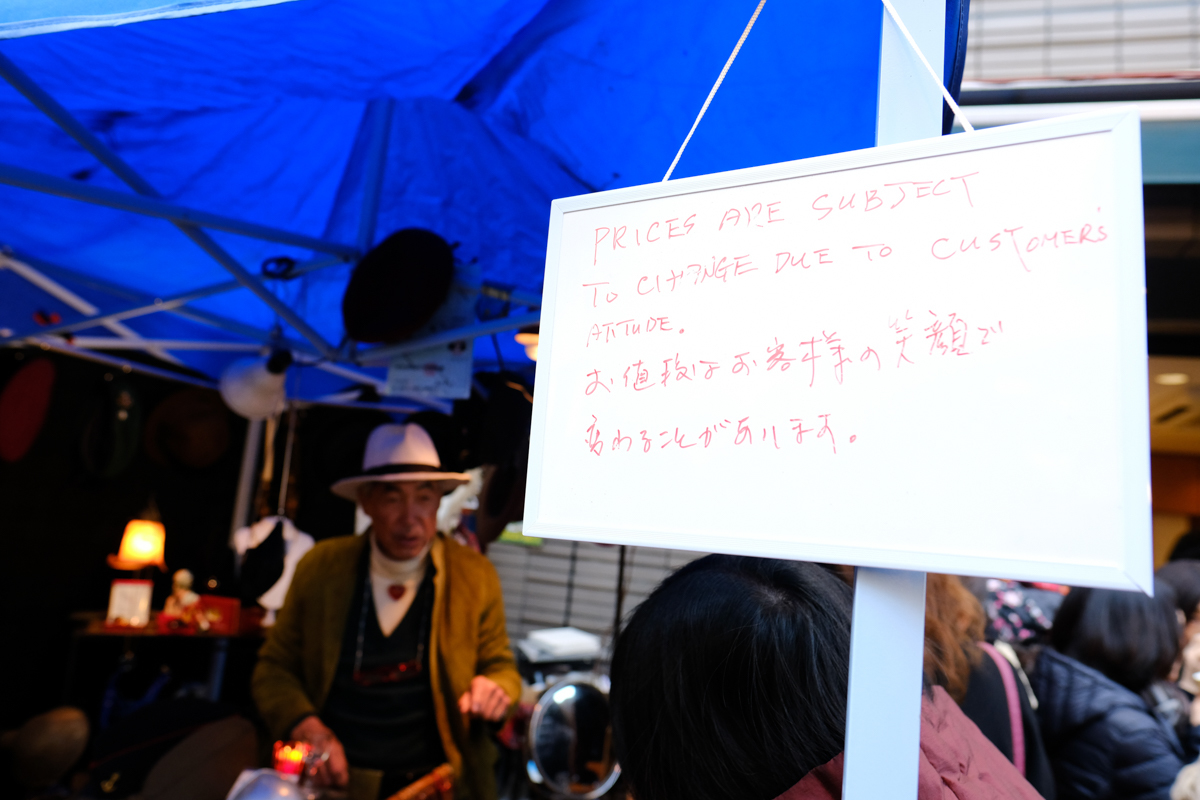 PRICES ARE SUBJECT
TO CHANGE DUE TO CUSTOMER'S
ATITUDE.
お値段はお客様の笑顔で
変わることがあります。